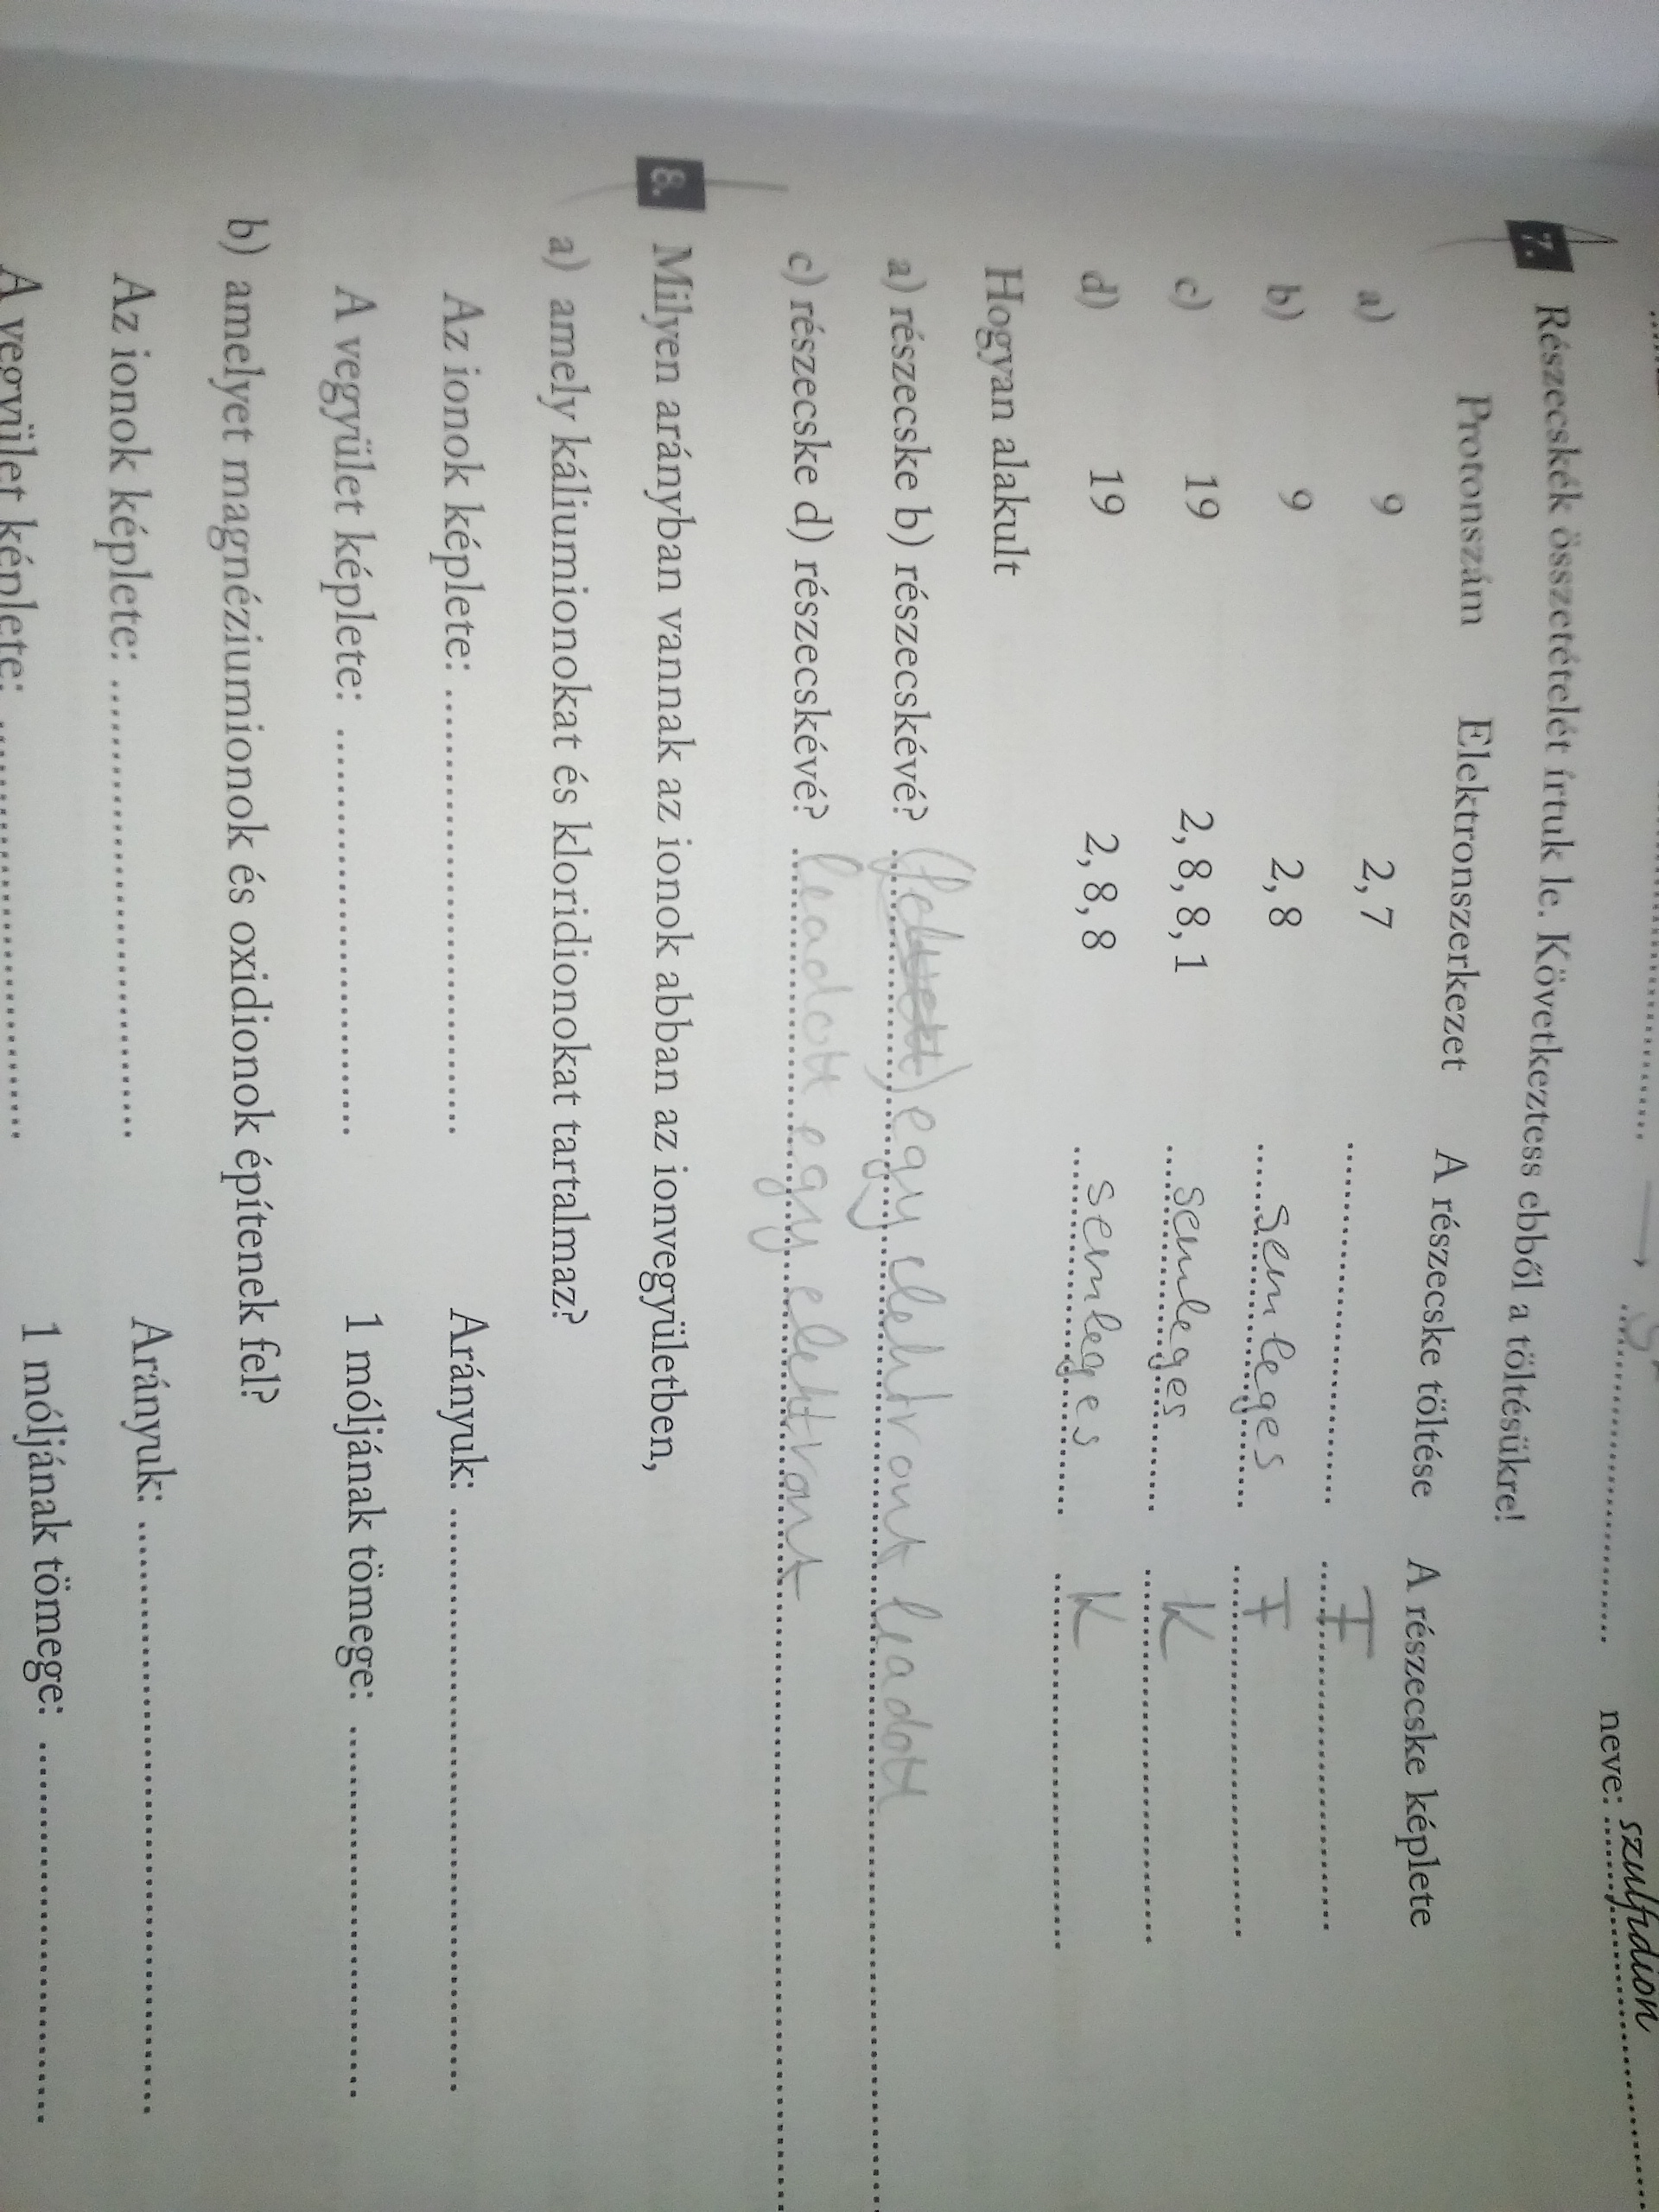 neve: szulfidion
7. Részecskék összetételét írtuk le. Következtess ebből a töltésükre!
Protonszám Elektronszerkezet A részecske töltése A részecske képlete
a) 9 2, 7 F
b) 9 2, 8 semleges F
c) 19 2, 8, 8, 1 semleges K
d) 19 2, 8, 8 semleges K
Hogyan alakult
a) részecske b) részecskévé? egy elektront leadott
c) részecske d) részecskévé? leadott egy elektront
8. Milyen arányban vannak az ionok abban az ionvegyületben,
a) amely káliumionokat és kloridionokat tartalmaz?
Az ionok képlete: Arányuk:
A vegyület képlete: 1 móljának tömege:
b) amelyet magnéziumionok és oxidionok építenek fel?
Az ionok képlete: Arányuk:
A vegyület képlete: 1 móljának tömege: